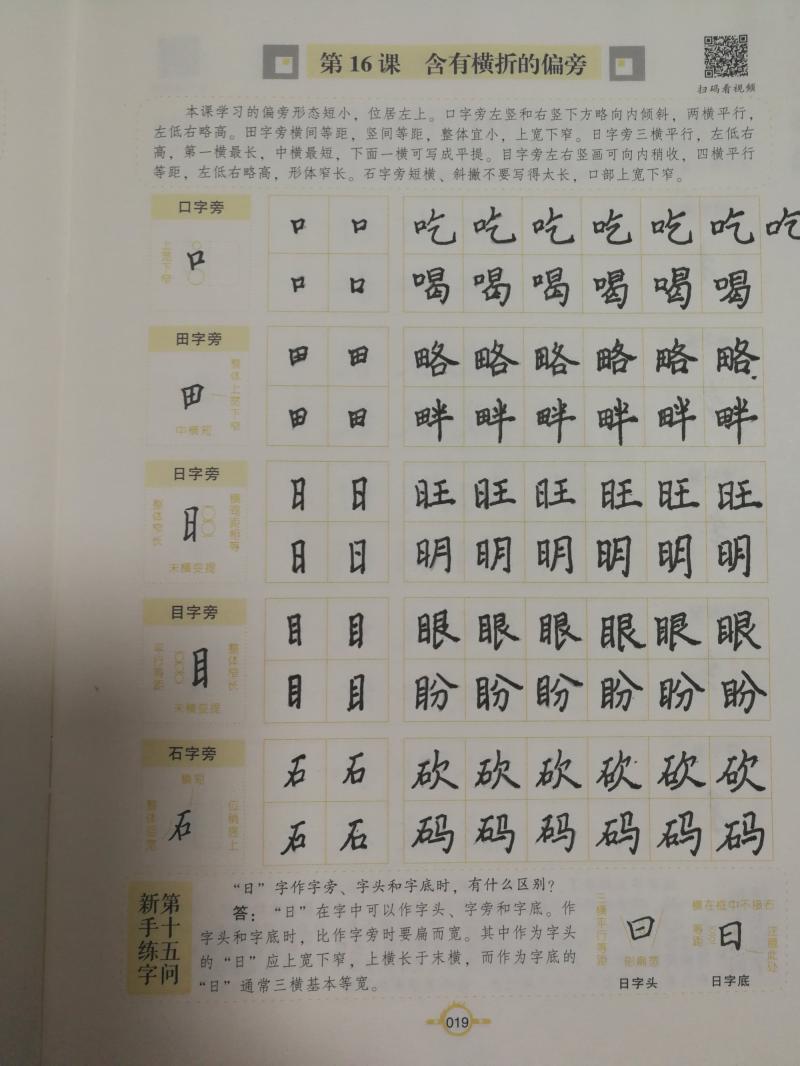 第16课 含有横折的偏旁
扫码看视频
本课学习的偏旁形态短小，位居左上。口字旁左竖和右竖下方略向内倾斜，两横平行，
左低右略高。田字旁横间等距，竖间等距，整体宜小，上宽下窄。日字旁三横平行，左低右
高，第一横最长，中横最短，下面一横可写成平提。目字旁左右竖画可向内稍收，四横平行
等距，左低右略高，形体窄长。石字旁短横、斜撇不要写得太长，口部上宽下窄。
口字旁
上宽下窄
口
口 口 吃 吃 吃 吃 吃 吃 吃
口 口 喝 喝 喝 喝 喝 喝
田字旁
整体上宽下窄
田
中横短
田 田 略 略 略 略 略 略
田 田 畔 畔 畔 畔 畔 畔
日字旁
整体窄长
日
横间距相等
末横变提
日 日 旺 旺 旺 旺 旺 旺
日 日 明 明 明 明 明 明
目字旁
平行等距
目
整体窄长
末横变提
目 目 眼 眼 眼 眼 眼 眼
目 目 盼 盼 盼 盼 盼 盼
石字旁
横短
石
位稍居上
石 石 砍 砍 砍 砍 砍 砍
石 石 码 码 码 码 码 码
新手练字第十五问
“日”字作字旁、字头和字底时，有什么区别？
答：“日”在字中可以作字头、字旁和字底。作
字头和字底时，比作字旁时要扁而宽。其中作为字头
的“日”应上宽下窄，上横长于末横，而作为字底的
“日”通常三横基本等宽。
三横平行等距
日
形扁宽
日字头
横在框中不接右
等距
日
注意此处
日字底
019